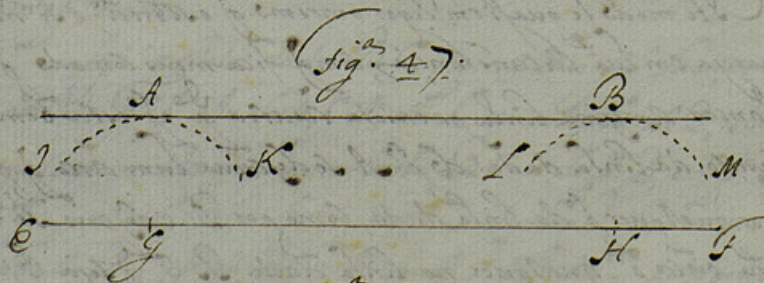 (fig.ª 4).
A B
I K L M
E G H F